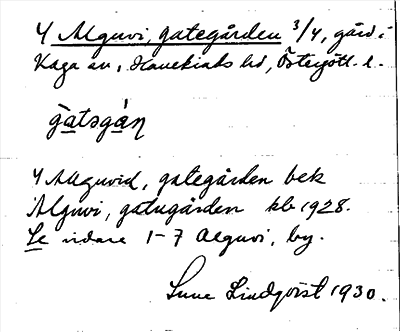 4 Alguvi, gategården 3/4, gård i
Kaga sn, Hanekinds hd, Östergötl. l.
gàtǝgán
4 Alguvid, gategården bek
Alguvi, gatugården kb 1928.
Se vidare 1-7 Alguvi, by.
Sune Lindqvist 1930.